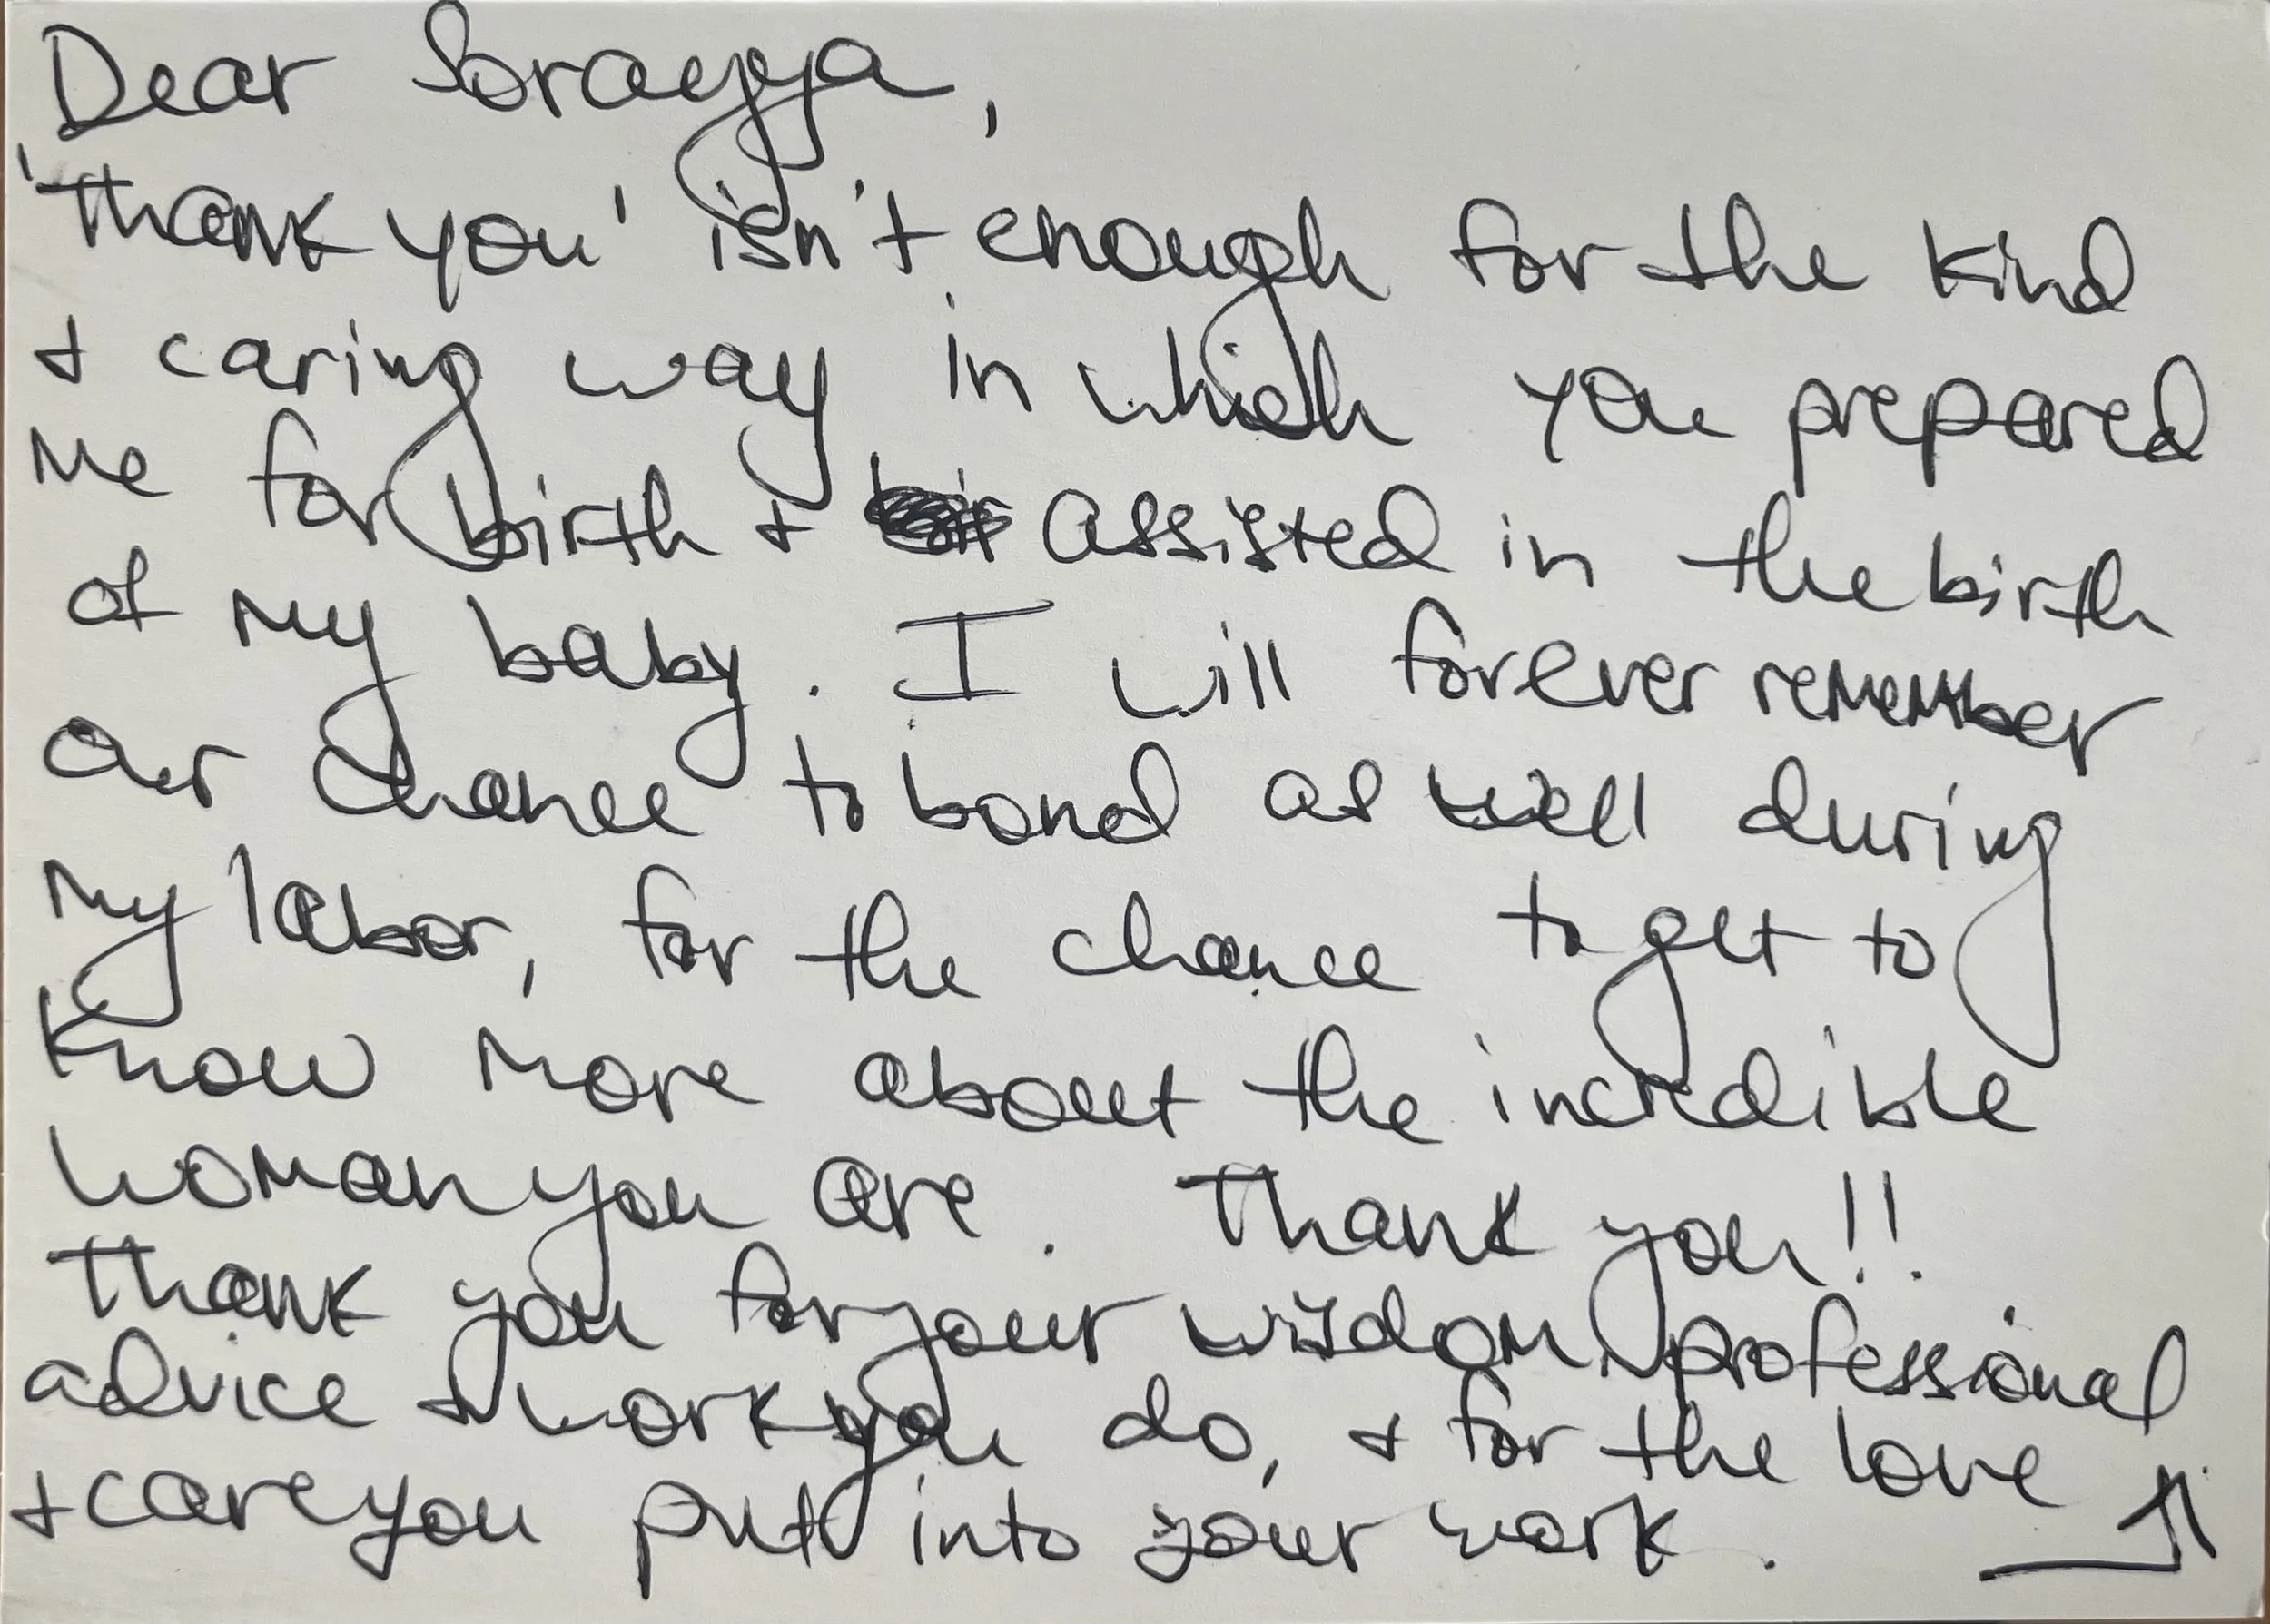 Dear Sorayya,
'Thank you' isn't enough for the kind
+ caring way in which you prepared
me for birth + assisted in the birth
of my baby. I will forever remember
our chance to bond as well during
my labor, for the chance to get to
know more about the incredible
woman you are. Thank you!!
Thank you for your wisdom, professional
advice + work you do, + for the love
+ care you put into your work.